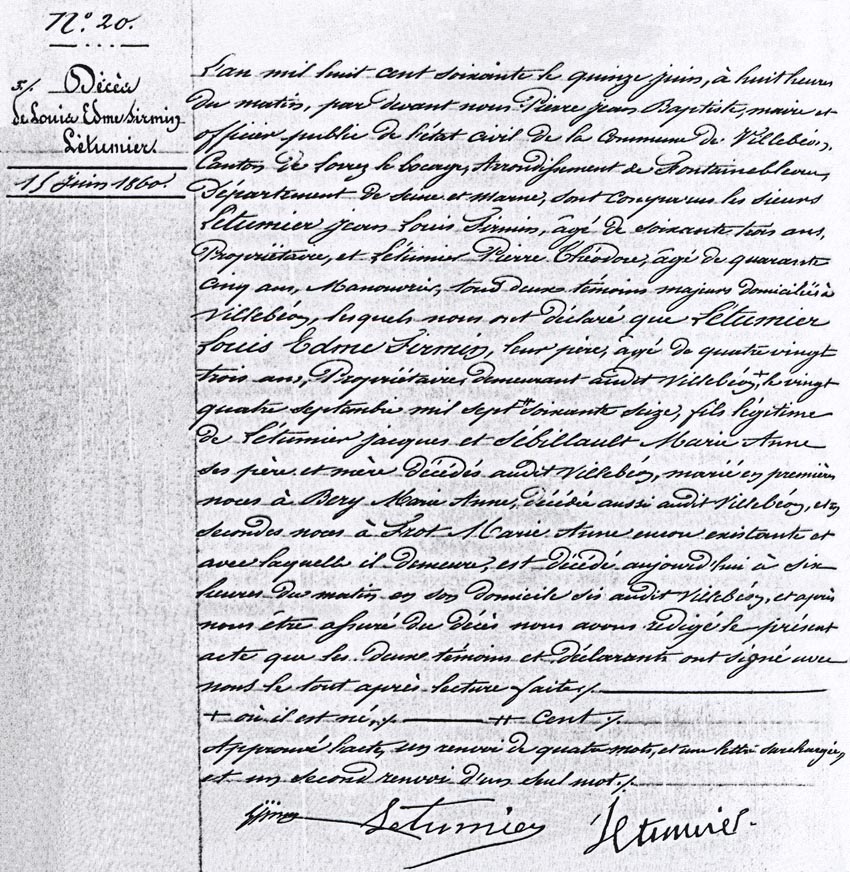 N.o 20.
Décès
de Louis Edme Firmin
Létumier
15 Juin 1860.
L'an mil huit cent soixante le quinze juin, à huit heures
du matin, par devant nous Pierre Jean Baptiste, maire et
officier public de l'état civil de la Commune de Villebéon,
Canton de Lorrez le bocage, Arrondissement de Fontainebleau,
Département de Seine et Marne, sont comparus les sieurs
Létumier Jean Louis Firmin, âgé de soixante trois ans,
Propriétaire, et Létumier Pierre Théodore, âgé de quarante
cinq ans, Manouvrier, tous deux témoins majeurs domiciliés à
Villebéon, lesquels nous ont déclaré que Létumier
Louis Edme Firmin, leur père, âgé de quatre vingt
trois ans, Propriétaire demeurant audit Villebéon + le vingt
quatre septembre mil sept ++ soixante seize, fils légitime
de Létumier Jacques et Sébillault Marie Anne
ses père et mère décédés audit Villebéon, marié en premières
noces à Bery Marie Anne, décédée aussi audit Villebéon, et en
secondes noces à Frot Marie Anne encore existante et
avec laquelle il demeure, est décédé aujourd'hui à six
heures du matin en son domicile sis audit Villebéon, et après
nous être assuré du décès nous avons rédigé le présent
acte que les deux témoins et déclarants ont signé avec
nous le tout après lecture faite ./.
+ où il est né, ./. ++ cent ./.
Approuvé l'acte, un renvoi de quatre mots, et une lettre surchargée,
et un second renvoi d'un seul mot ./.
Létumier Létumier